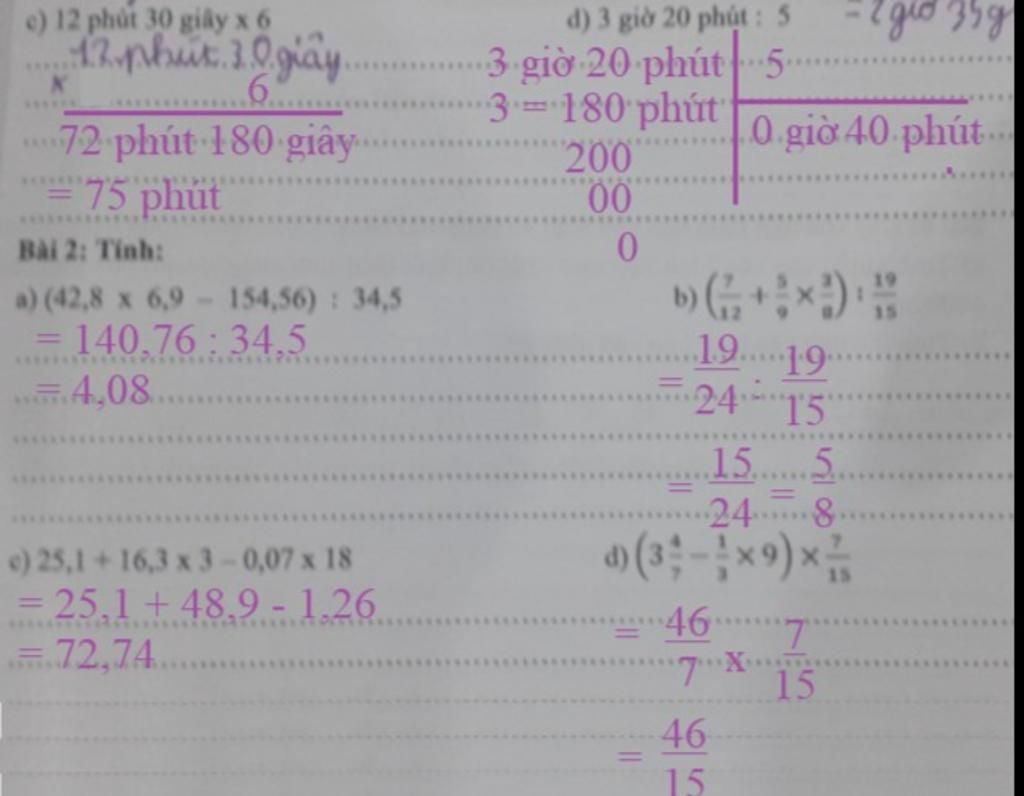 c) 12 phút 30 giây x 6
12 phút 30 giây
x 6
72 phút 180 giây
= 75 phút
d) 3 giờ 20 phút : 5
3 giờ 20 phút 5
3 = 180 phút 0 giờ 40 phút
200
00
0
Bài 2: Tính:
a) (42,8 x 6,9 - 154,56) : 34,5
= 140,76 : 34,5
= 4,08
b) (7/12 + 5/9 × 3/8) : 19/15
= 19/24 : 19/15
= 15/24 = 5/8
c) 25,1 + 16,3 x 3 - 0,07 x 18
= 25,1 + 48,9 - 1,26
= 72,74
d) (3 4/7 - 1/3 × 9) × 7/15
= 46/7 x 7/15
= 46/15